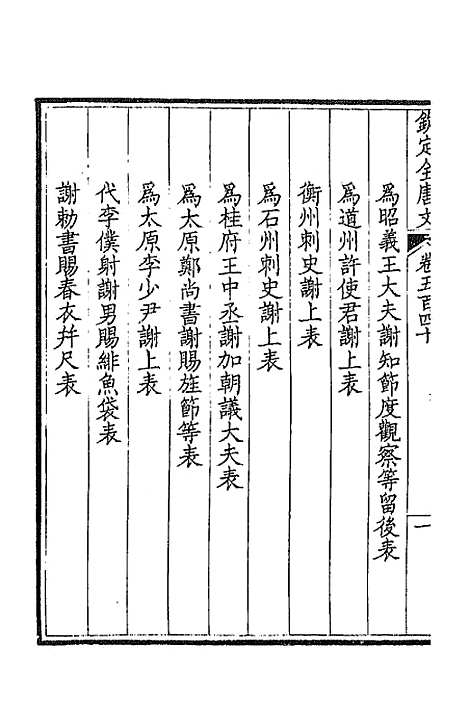 欽定全唐文 卷五百四十 一
爲昭義王大夫謝知節度觀察等留後表
爲道州許使君謝上表
衡州刺史謝上表
爲石州刺史謝上表
爲桂府王中丞謝加朝議大夫表
爲太原鄭尚書謝賜旌節等表
爲太原李少尹謝上表
代李僕射謝男賜緋魚袋表
謝勅書賜春衣并尺表